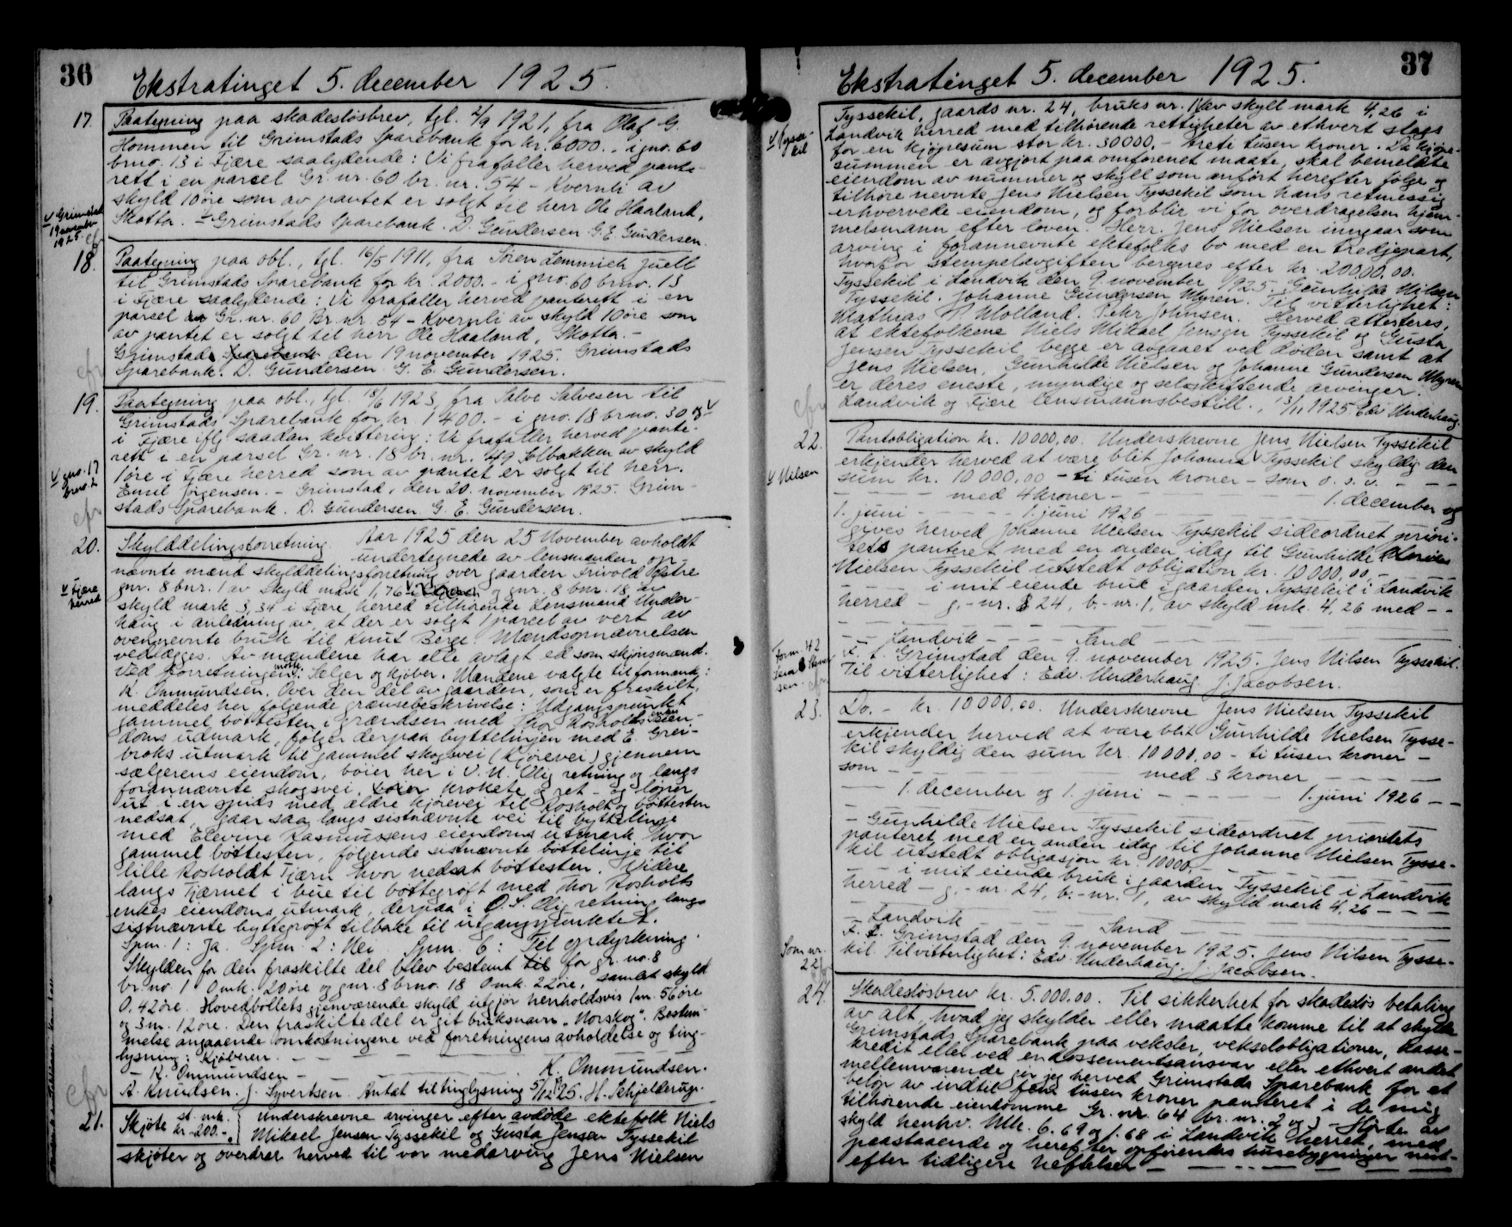 36
Ekstratinget 5. december 1925.
17. Paategning paa skadeslösbrev, tgl. 2/9 1921, fra Olaf G.
Hommen til Grimstads Sparebank for kr. 6000.- i gno. 60
brno. 13 i Fjære saalydende: Vi frafalder herved pante-
rett i en parsel Gr. nr. 60 br. nr. 54 - Kvernli av
skyld 10 öre som av pantet er solgt til herr Ole Haaland,
Skotta. Grimstads Sparebank. D. Gundersen G. E. Gundersen.
Grimstad
19 november
1925.
cfr
18. Paategning paa obl., tgl. 16/5 1911, fra Sören Lemmich Juell
til Grimstads Sparebank for kr. 2000.- i gno. 60 brno. 13
i Fjære saalydende: Vi frafaller herved panterett i en
parcel Gr. nr. 60 Br. nr. 54 - Kvernli av skyld 10 öre som
av pantet er solgt til herr Ole Haaland, Skotta. -
Grimstad den 19 november 1925. Grimstads
Sparebank. D. Gundersen G. E. Gundersen.
cfr
19. Paategning paa obl., tgl. 18/6 1923, fra Salve Salvesen til
Grimstads Sparebank for kr. 1400.- i gno. 18 brno. 30
i Fjære iflg saadan kvittering: Vi frafaller herved pante-
rett i en parsel Gr. nr. 18 br. nr. 49 Solbakken av skyld
1 öre i Fjære herred som av pantet er solgt til herr.
Emil Jörgensen. - Grimstad, den 20. november 1925. Grim-
stads Sparebank. D. Gundersen G. E. Gundersen.
cfr
20. Skylddelingsforretning Aar 1925 den 25 November avholdt
undertegnede av lensmanden op-
nævnte mænd skylddelingsforretning over gaarden Trivold Vestre
gnr. 8 bnr. 1 av skyld mark 1,76 og gnr. 8 bnr. 18 av
skyld mark 3,34 i Fjære herred tilhörende Lensmand Under-
haug i anledning av, at der er solgt 1 parcel av vert av
ovennevnte bruk til Knut Berge. Mændsopnævnelsen
vedlægges. Av mændene har alle avlagt ed som skjönsmænd.
Ved forretningen mötte: Selger og kjöber. Mændene valgte til formand:
K. Ommundsen. Over den del av gaarden, som er fraskilt,
meddeles her følgende grænsebeskrivelse: Utgangspunkt
gammel böttesten i grændsen med Thor Rosholts eien-
doms udmark, følger derpaa byttelinjen med E. Grei-
broks utmark til gammel skogsvei (kjörevei) gjennem
sælgerens eiendom, böier her i V. N. Vlig retning og langs
forannævnte skogsvei, krokete
ut i en spids med ældre kjörevei til Rosholt og böttesten
nedsat, gaar saa langs sistnævnte vei til byttelinje
med Elevine Rasmussens eiendoms utmark, hvor
gammel böttesten, følgende sistnævnte böttelinje til
lille Rosholdt Tjærn, hvor nedsat böttesten. Videre
langs Tjærnet i bue til böttegröft med Thor Rosholts
enkes eiendoms utmark, derpaa i O. S. Olig retning langs
sistnævnte byttegröft tilbake til utgangspunktet.
Spm. 1: Ja. Spm. 2: Nei Spm. 6: Til opdyrkning.
Skylden for den fraskilte del blev bestemt til for gr. no. 8
br. no. 1 0 mk. 20 öre og gnr. 8 brno. 18 0 mk. 22 öre, samlet skyld
0.42 öre. Hovedbollets gjenværende skyld utgjör henholdsvis 1 m. 56 öre
og 3 m. 12 öre. Den fraskilte del er git bruksnavn "Norskog". Bestem-
melse angaaende omkostningene ved forretningens avholdelse og ting-
lysning: Kjöberen. -
- K. Ommundsen - K. Ommundsen.
A. Knudsen. J. Syvertsen. Antat til tinglysning 5/12 25. H. Schjelderup.
Fjære
herred
cfr
21. Skjöte st. mrk. kr. 200.- Underskrevne arvinger efter avdöde ektefolk Niels
Mikael Jensen Tyssekil og Gusta Jensen Tyssekil
skjöter og overdrar herved til vor medarving Jens Nielsen
37
Ekstratinget 5. december 1925.
Tyssekil, gaards nr. 24, bruks nr. 1 av skyld mark 4,26 i
Landvik herred med tilhörende rettigheter av ethvert slags
for en kjöpesum stor kr. 30000.- treti tusen kroner. Da kjöpe-
summen er avgjort paa omforenet maate, skal bemeldte
eiendom av nummer og skyld som anfört herefter følge og
tilhöre nevnte Jens Nielsen Tyssekil som hans retmessig
erhvervede eiendom, og forblir vi for overdragelsen hjem-
melsmænn efter loven. Herr. Jens Nielsen inngaar som
arving i forannevnte ektefolks bo med en tredjepart,
hvorfor stempelavgiften beregnes efter kr. 20000,00.
Tyssekil i Landvik den 9. november 1925. Gunhilde Nilsen
Tyssekil. Johanne Gundersen Myren. Til vitterlighet:
Mathias Molland. Pehr Johnsen. Herved attesteres,
at ektefolkene Niels Mikael Jensen Tyssekil og Gusta
Jensen Tyssekil begge er avgaaet ved döden samt at
Jens Nielsen, Gunhilde Nielsen og Johanne Gundersen Myren
er deres eneste, myndige og selvskiftende arvinger.
Landvik og Fjære lensmannsbestill., 13/11 1925 Edv Underhaug.
Tysse-
kil
cfr
22. Pantobligation kr. 10000,00. Underskrevne Jens Nielsen Tyssekil
erkjender herved at være blit Johanna Tyssekil skyldig den
sum kr. 10000,00 - ti tusen kroner - som o. s. v. - - -
- - - med 4 kroner - - 1. december og
1. juni - - - 1. juni 1926 - - -
gives herved Johanne Nielsen Tyssekil sideordnet priori-
tets panteret med en anden idag til Gunhilde
Nielsen Tyssekil utstedt obligation kr. 10000,00. - -
- - i mit eiende bruk i gaarden Tyssekil i Landvik
herred - g.-nr. 24, b.-nr. 1, av skyld mk. 4,26 med - -
- - Landvik - - Sand - - -
F. t. Grimstad den 9. november 1925. Jens Nilsen Tyssekil.
Til vitterlighet: Edv. Underhaug J. Jacobsen.
Nilsen
cfr
23. Do. - kr. 10000,00. Underskrevne Jens Nielsen Tyssekil
erkjender herved at være blit Gunhilde Nielsen Tysse-
kil skyldig den sum kr. 10000,00 - ti tusen kroner -
som - - - med 3 kroner - - -
- - 1. december og 1. juni - - - 1. juni 1926 - -
- Gunhilde Nielsen Tyssekil sideordnet prioritets
panteret med en anden idag til Johanne Nielsen Tysse-
kil utstedt obligasjon kr. 10000,- - -
- - i mit eiende bruk i gaarden Tyssekil i Landvik
herred - g.-nr. 24, b.-nr. 1, av skyld mark 4,26 - - -
- Landvik - - Sand - - -
F. t. Grimstad den 9. november 1925. Jens Nilsen Tysse-
kil. Til vitterlighet: Edv. Underhaug. J. Jacobsen.
Som nr.
22
cfr
24. Skadeslösbrev kr. 5.000,00. Til sikkerhet for skadeslös betaling
av alt hvad jeg skylder eller maatte komme til at skylde
Grimstads Sparebank paa veksler, vekselobligationer, kasse-
kredit eller ved endossementsansvar eller ethvert andet
mellemværende gir jeg herved Grimstads Sparebank for et
belöp av indtil fem tusen kroner panteret i de mig
tilhörende eiendomme Gr. nr. 64 br. nr. 2 og 3 av
skyld henhv. Mk. 6.69 og 1.68 i Landvik herred, med
paastaaende og herefter opförendes husebygninger nest-
efter tidligere heftelser - - -